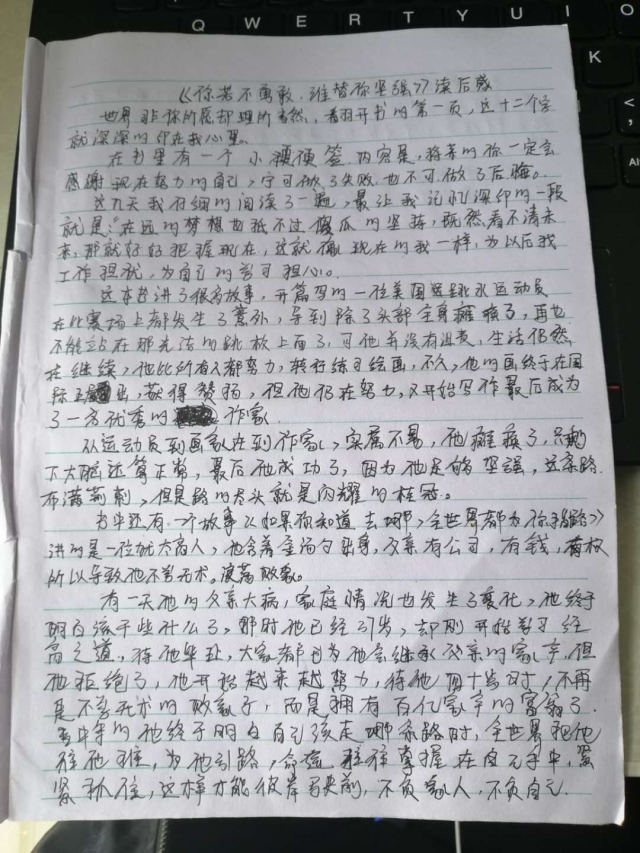 Q W E R T Y U I
K
《你若不勇敢,谁替你坚强》读后感
世界非你所愿却理所当然,看翻开书的第一页,这十二个字
就深深的印在我心里。
在书里有一个小便签,内容是,将来的你一定会
感谢现在努力的自己,宁可做了失败,也不可做了后悔。
这几天我仔细的阅读了一遍,最让我记忆深印的一段
就是:“在远的梦想也抵不过傻瓜的坚持,既然看不清未
来,那就好好把握现在,这就像现在的我一样,为以后找
工作担忧,为自己的学习担心。
这本书讲了很多故事,开篇写的一位美国运跳水运动员
在比赛场上却发生了意外,导到除了头部全身瘫痪了,再也
不能站在那光洁的跳板上面了,可他并没有沮丧,生活仍然
继续,他比所有人都努力,转行练习绘画,不久,他的画终于在国
际 出,获得赞扬,但他仍在努力,又开始写作最后成为
了一方优秀的 作家
从运动员到画家在到作家,实属不易,他瘫痪了,只剩
下大脑还算正常,最后他成功了,因为他足够坚强,这条路
布满荆刺,但是路的尽头就是闪耀的桂冠。
书中还有一个故事《如果你知道去哪,全世界都为你让路》
讲的是一位犹太商人,他含着金汤勺出身,父亲有公司,有钱,有权
所以导致他不学无术。浪荡败家。
有一天他的父亲大病,家庭情况也发生了变化,他终于
明白该干些什么了,那时他已经 ,却刚开始学习经
商之道,待他毕业,大家都以为他会继承父亲的家产,但
他拒绝了,他开始越来越努力,待他四十岁时,不再
是不学无术的败家子,而是拥有百亿家产的富翁了.
书中写的他终于明白自己该走哪条路时,全世界把他
往他 ,为他引路,命运往往掌握在自己手中,紧
紧抓住,这样才能彼岸 前,不负家人,不负自己.